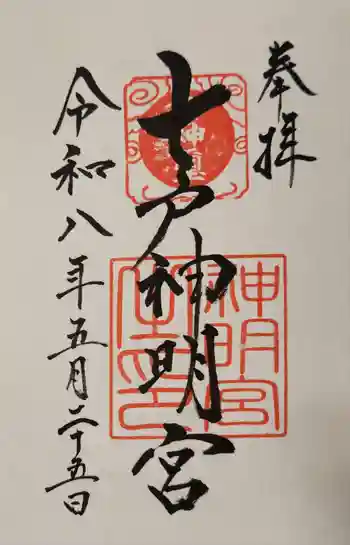 奉拝
七戸神明宮
令和八年五月二十五日
神明宮